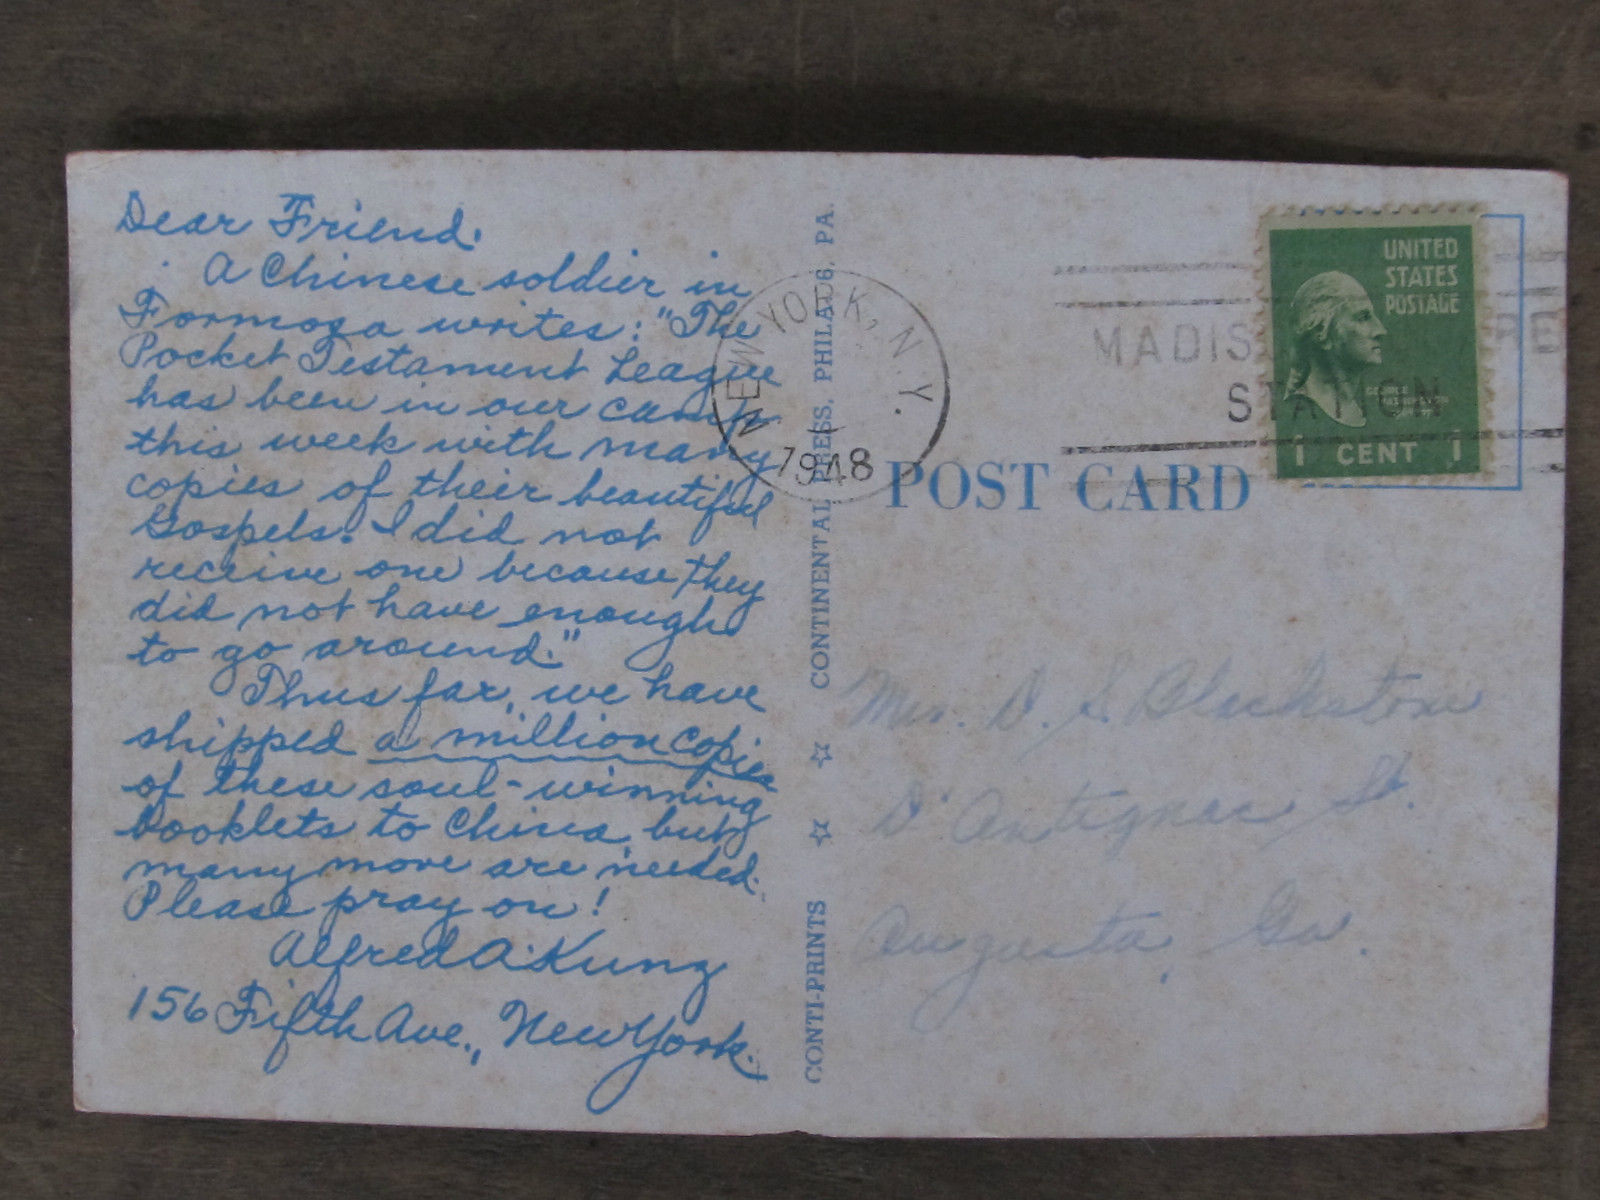 Dear Friend.
A Chinese soldier in
Formosa writes: "The
Pocket Testament League
has been in our camp
this week with many
copies of their beautiful
Gospels. I did not
receive one because they
did not have enough
to go around."
Thus far, we have
shipped a million copies
of these soul-winning
booklets to China but
many more are needed.
Please pray on!
Alfred A. Kunz
156 Fifth Ave., New York.
CONTI-PRINTS ☆ ☆ CONTINENTAL PRESS, PHILA. 6, PA.
NEW YORK, N.Y.
1948
MADIS RE
STATION
UNITED
STATES
POSTAGE
1 CENT 1
POST CARD
Mrs. D. S. Blackstone
D'Antignac St.
Augusta, Ga.